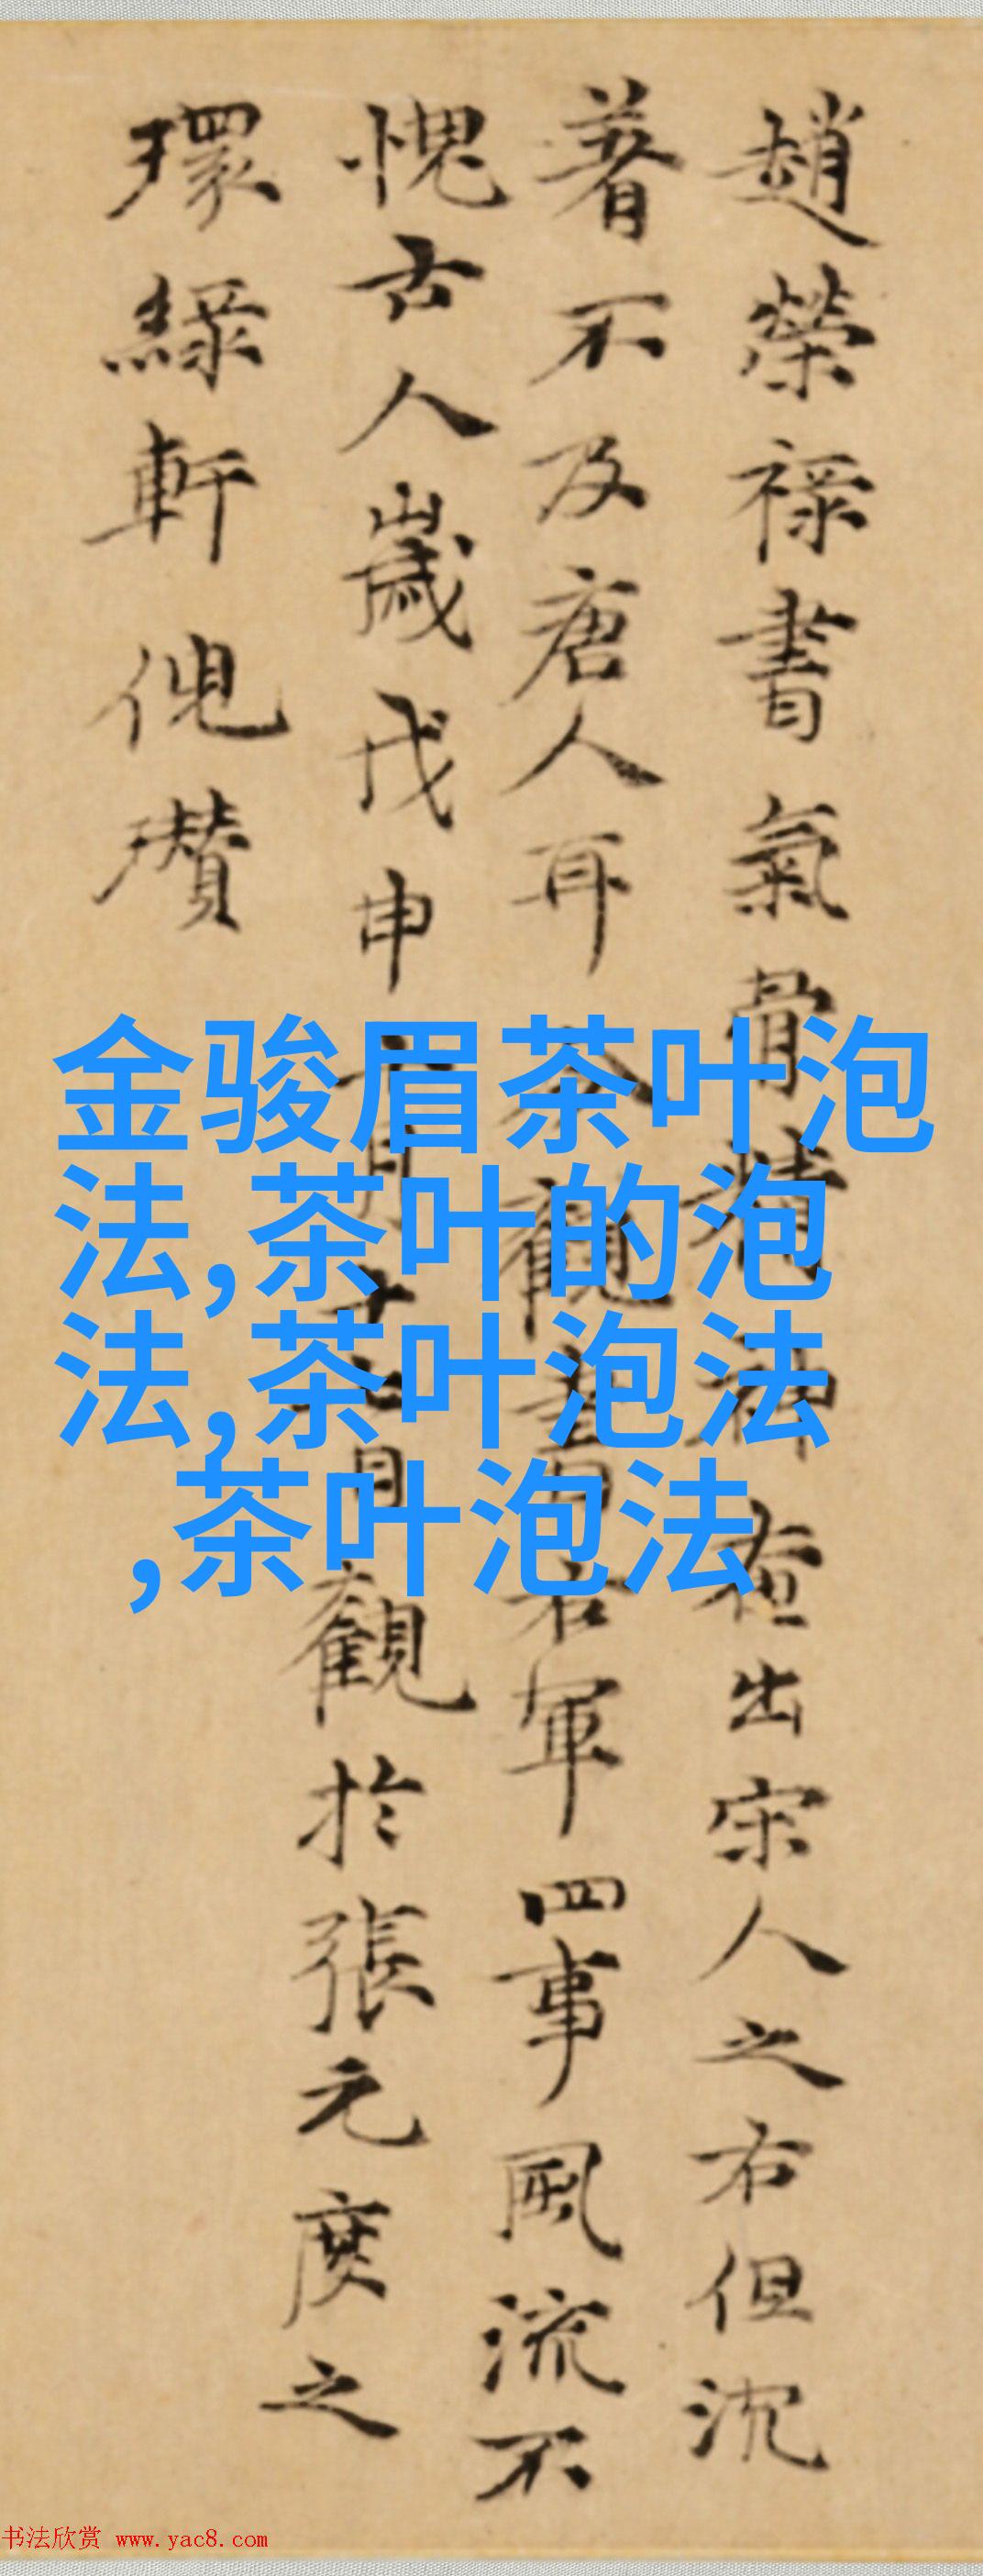 趙榮祿書氣骨精神出宋人之右但沈
著不及唐人耳今觀書右軍四事風流不
愧古人歲戊申六月十日觀於張元度之
環綠軒倪瓚
金骏眉茶叶泡
法,茶叶的泡
法,茶叶泡法
,茶叶泡法
书法欣赏 www.yac8.com